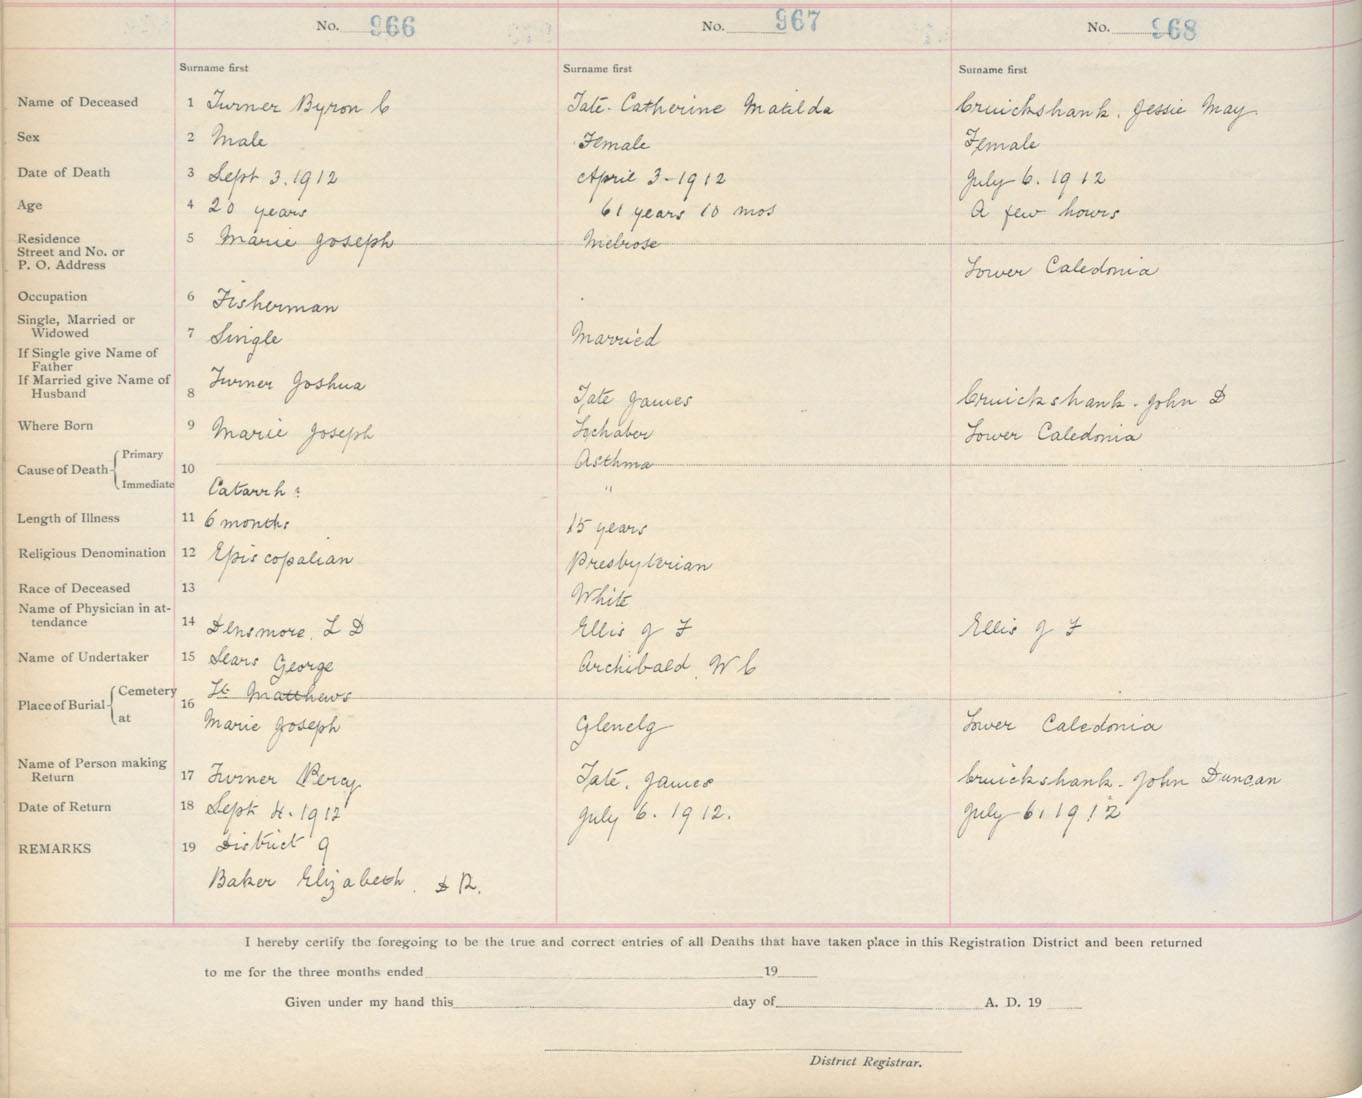 No. 966 No. 967 No. 968
Surname first Surname first Surname first
Name of Deceased 1 Turner Byron C Tate. Catherine Matilda Cruickshank. Jessie May
Sex 2 Male Female Female
Date of Death 3 Sept 3. 1912 April 3-1912 July 6. 1912
Age 4 20 years 61 years 10 mos A few hours
Residence 5 Marie Joseph Melrose
Street and No. or
P. O. Address Lower Caledonia
Occupation 6 Fisherman
Single, Married or
Widowed 7 Single Married
If Single give Name of
Father
If Married give Name of Turner Joshua
Husband 8 Tate James Cruickshank. John D
Where Born 9 Marie Joseph Lochaber Lower Caledonia
Primary Asthma
Cause of Death 10
Immediate Catarrh : "
Length of Illness 11 6 months 15 years
Religious Denomination 12 Episcopalian Presbyterian
Race of Deceased 13 White
Name of Physician in at-
tendance 14 Densmore. L D Ellis J F Ellis J F
Name of Undertaker 15 Sears George Archibald. W C
Cemetery St Matthews
Place of Burial 16
at Marie Joseph Glenelg Lower Caledonia
Name of Person making
Return 17 Turner Percy Tate, James Cruickshank. John Duncan
Date of Return 18 Sept 4. 1912 July 6. 1912. July 6, 1912
REMARKS 19 District 9
Baker Elizabeth. D R.
I hereby certify the foregoing to be the true and correct entries of all Deaths that have taken place in this Registration District and been returned
to me for the three months ended 19
Given under my hand this day of A. D. 19
District Registrar.